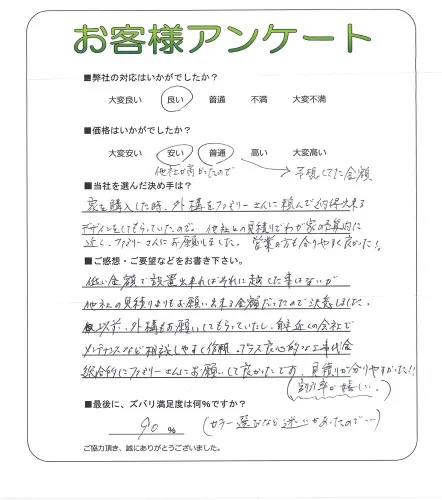 お客様アンケート
■弊社の対応はいかがでしたか？
大変良い 良い 普通 不満 大変不満
■価格はいかがでしたか？
大変安い 安い 普通 高い 大変高い
他社が高かったので → 予想してた金額
■当社を選んだ決め手は？
家を購入した時、外構をファミリーさんに頼んで納得出来る
デザインをしてもらっていたので。他社との見積りでわが家の予算内に
近く、ファミリーさんにお願いしました。営業の方も分りやすく良かった！
■ご感想・ご要望などをお書き下さい。
低い金額で設置出来ればそれに越した事はないが
他社の見積りよりもお願い出来る金額だったので決定しました。
以前、外構もお願いしてもらっていたし、 近くの会社で
メンテナンスなど相談しやすく 、プラス良心的な工事代金
総合的にファミリーさんにお願いして良かったです。見積りが分りやすかった!!
(割引率が嬉しい。)
■最後に、ズバリ満足度は何%ですか？
90 % (カラー選びなど迷いもあったので…)
ご協力頂き、誠にありがとうございました。